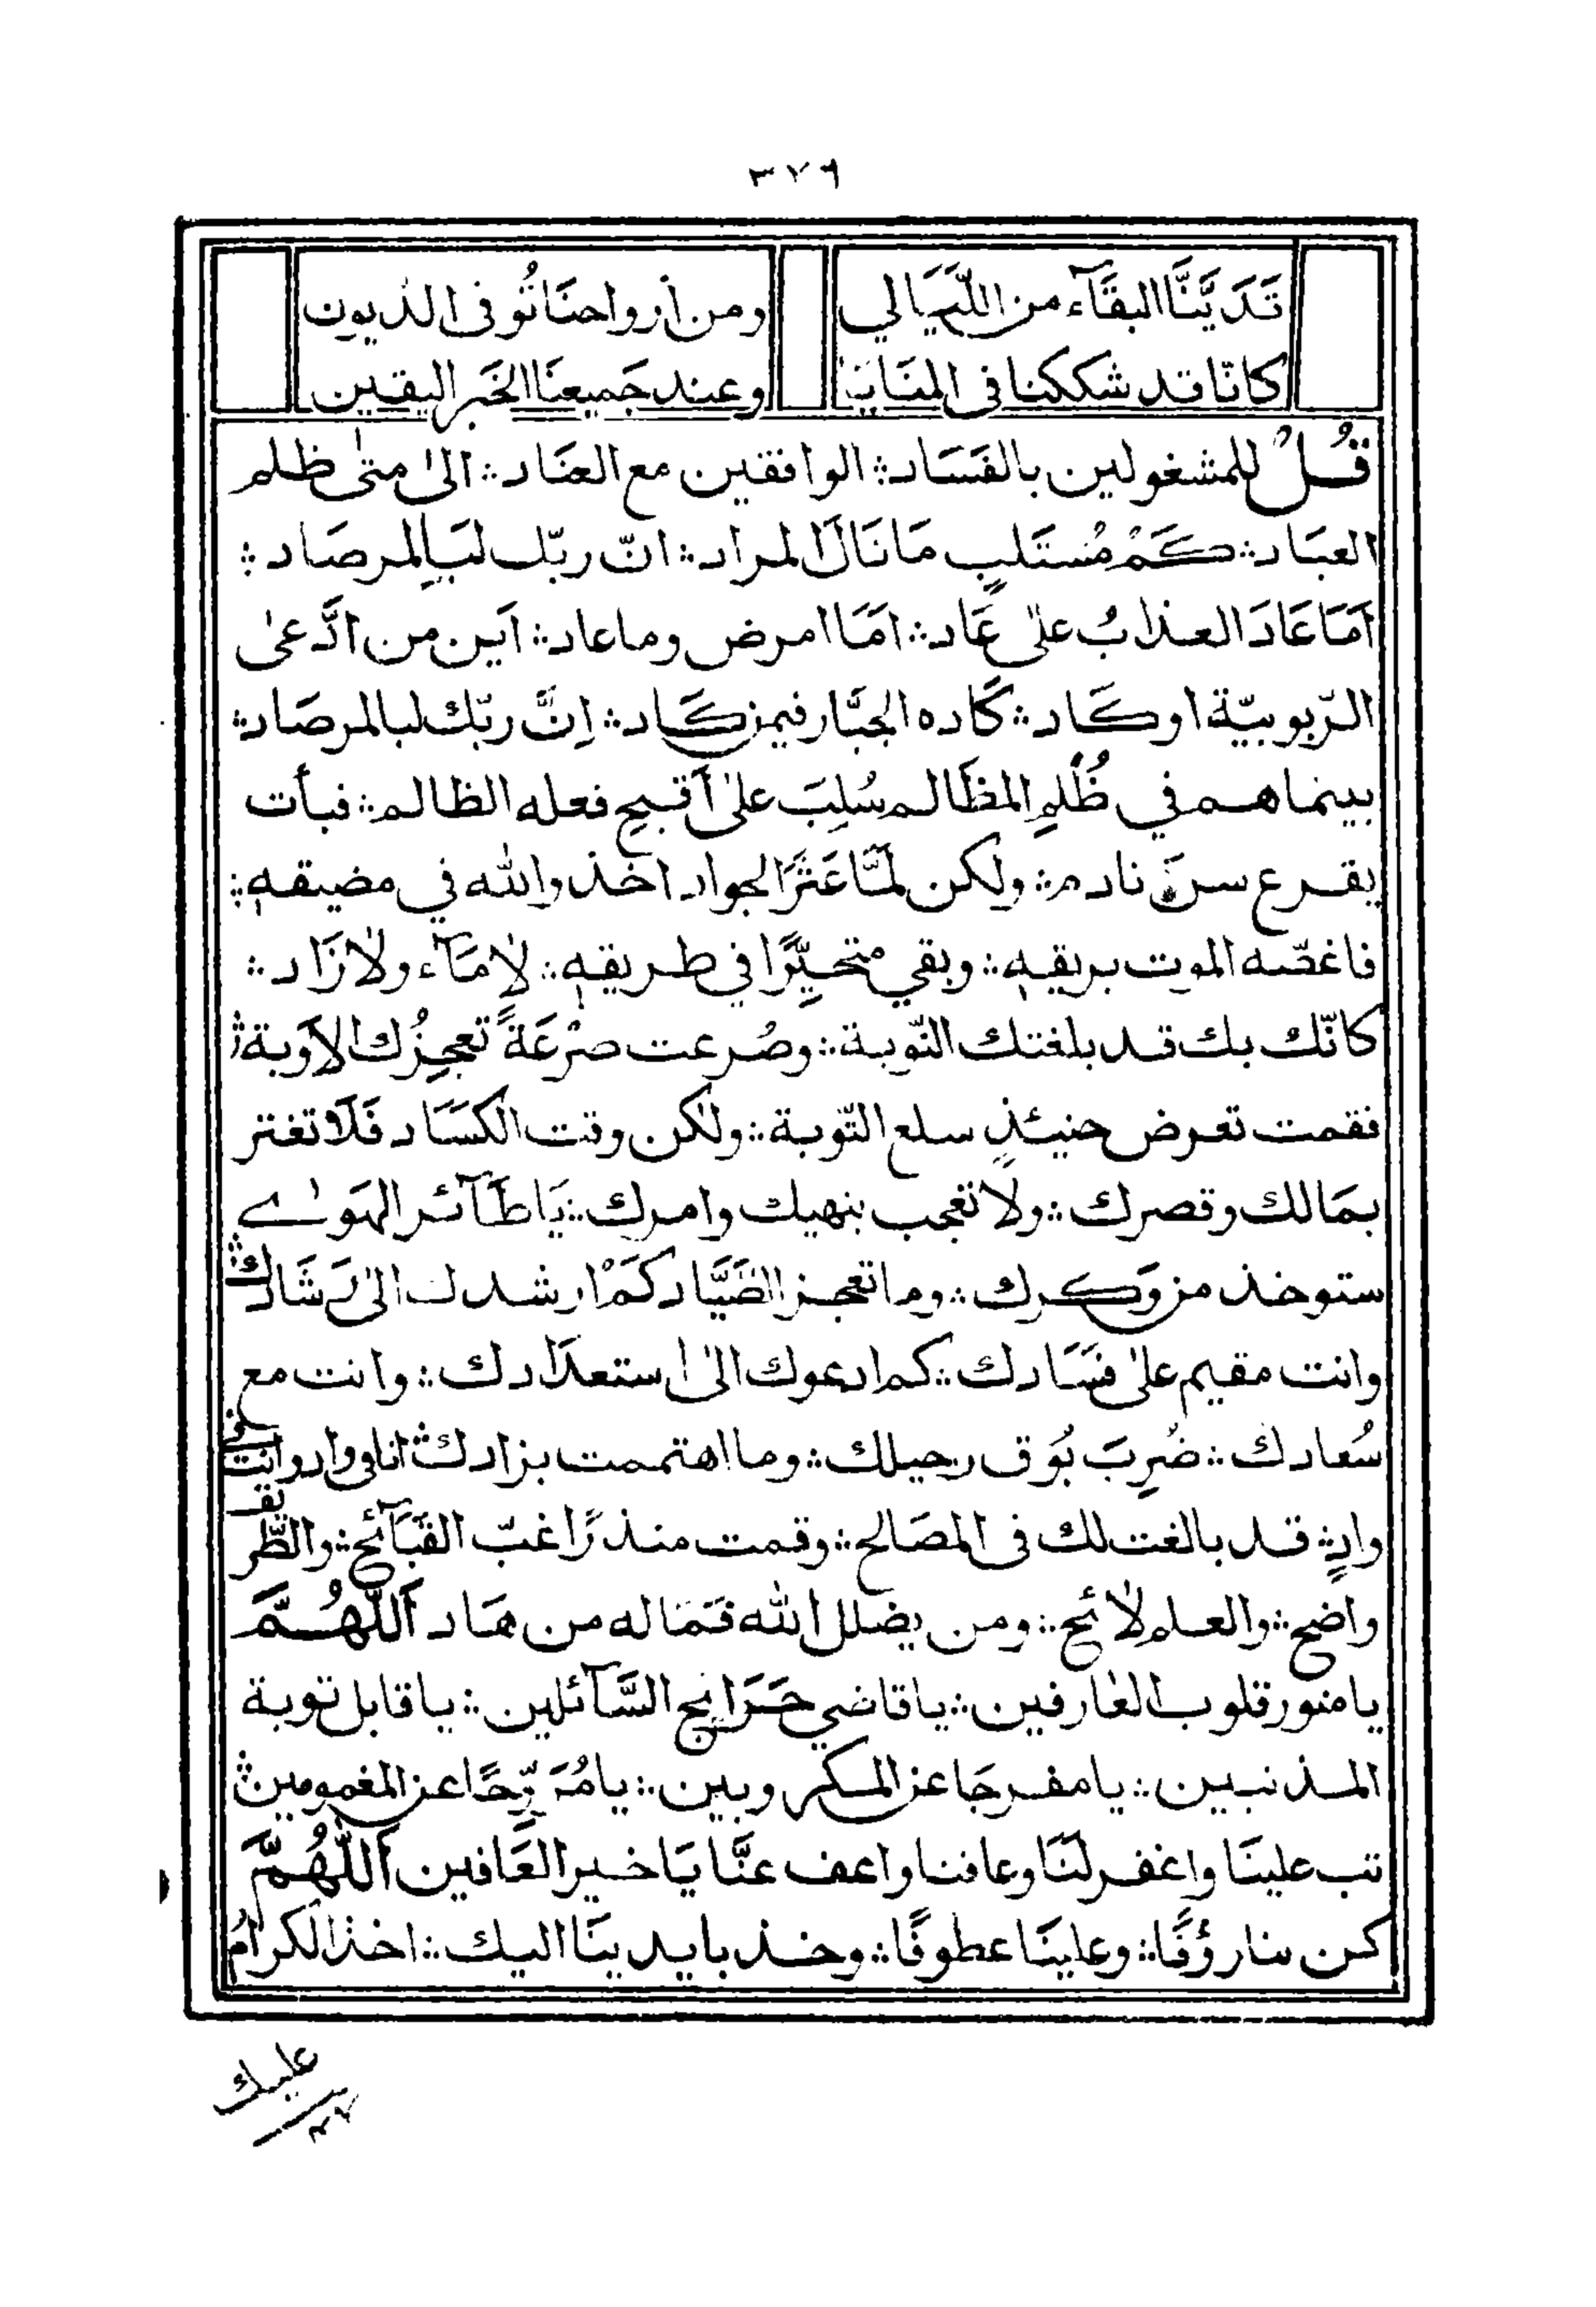 ٣٧٦
تَدَيَّنَّا البقَآء من اللّيَالي ومن أرواحنَا تُوفى الدّيون
كانّا قد شككنا فى المنَايَا وعند جَميعنَا الخَبر اليقين
قُلْ للمشغولين بالفَسَاد ؞ الوافقين مع العنَاد ؞ الىٰ متىٰ ظلم
العبَاد ؞ كَمْ مُستَلبٍ مَا نَالَ المراد ؞ انّ ربّك لبَالمرصَاد ؞
اَمَا عَادَ العذابُ علىٰ عَاد ؞ اَمَا امرض وما عاد ؞ اَين من ادَّعىٰ
الرّبوبيّة او كَاد ؞ كَاده الجبَّار فيمن كَاد ؞ اِنَّ ربّك لبالمرصَاد ؞
بينما هم في ظُلمِ المظَالم سُلِبَ علىٰ اَقبحِ فعله الظالم ؞ فبأت
يقرع سنّ نادم ؞ ولكن لمَّا عَثَرَ الجواد اخذ والله في مضيقهٖ ؞
فاغصّه الموت بريقهٖ ؞ وبقي متحيِّرًا في طريقهٖ ؞ لامَآء ولازَاد ؞
كانّك بك قد بلغتك النّوبة ؞ وصُرعت صرْعَةً تعجِزُك الاَوبة ؞
فقمت تعرض حنيئذٍ سلع التّوبة ؞ ولٰكن وقت الكسَاد فَلَا تغتر
بمَالك وقصرك ؞ ولا تعجب بنهيك وامرك ؞ يَا طَآئر الهوٰے
ستوخذ من وَكرك ؞ وما تعجز الصَيَّاد كَمْ ارشدك الىٰ رَشَادك ؞
وانت مقيم علىٰ فسَادك ؞ كم ادعوك الىٰ استعدَادك ؞ وانت مع
سُعادك ؞ ضُرِبَ بُوَق رحيلك ؞ وما اهتممت بزادك ؞ انا فى واد وانت فى
وادٍ ؞ قد بالغت لك فى المصَالح ؞ وقمت منذرًا غبّ القبَآئح ؞ والطّريق
واضح ؞ والعلم لائح ؞ ومن يضلل الله فمَا له من هَاد اَللّٰهُمَّ
يا منور قلوب العارفين ؞ يا قاضي حَوَائج السَّآئلين ؞ يا قابل توبة
المذنبين ؞ يا مفرجَا عن المكروبين ؞ يا مُرَوِّحًا عن المغمومين ؞
تب علينَا واغفرلنَا وعافنا واعف عنَّا يَا خير العَافين اَللّٰهُمَّ
كن بنا رؤفًا ؞ وعلينَا عطوفًا ؞ وخذ بايدينَا اليك ؞ اخذ الكرامُ
عليك